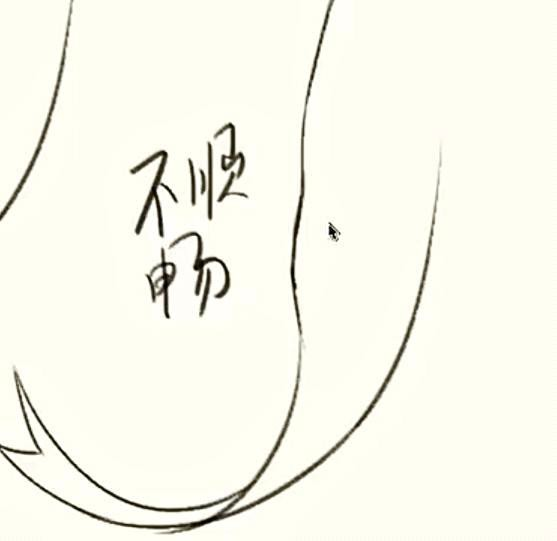 不顺
畅